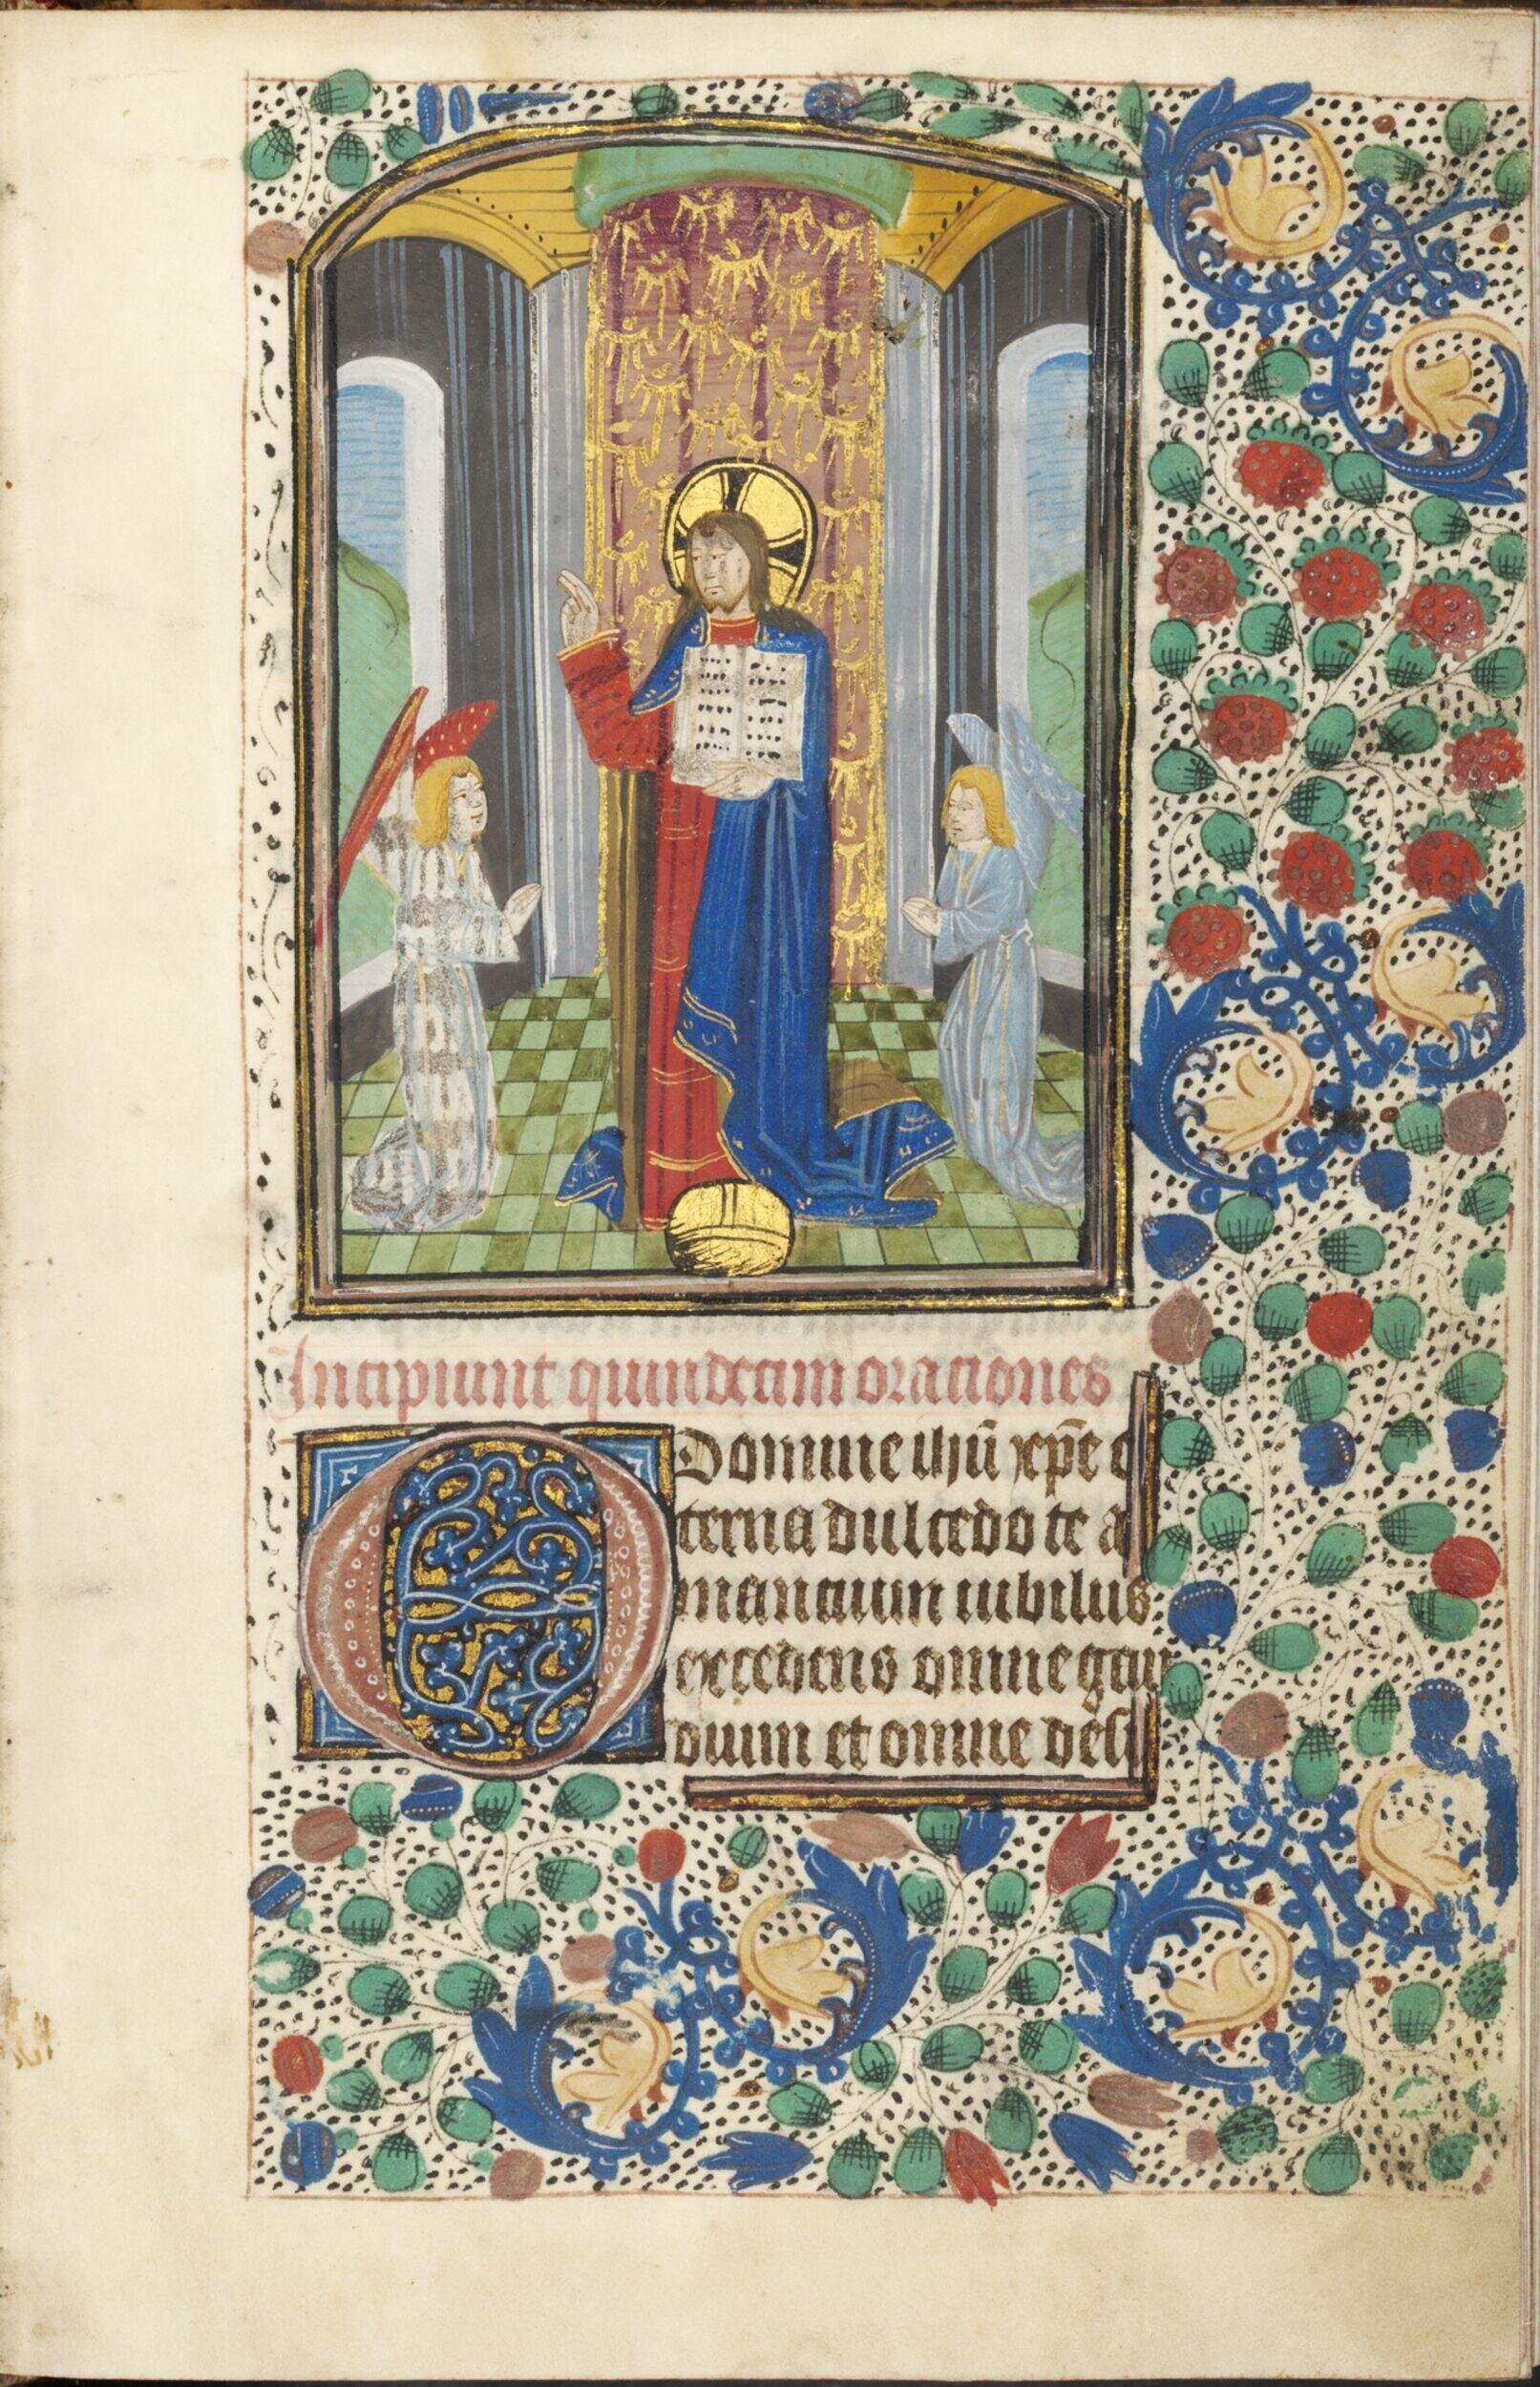 7
Incipiunt quindecim orationes
O Domine ihū xp̄e e
terna dulcedo te a
mantium iubilus
excedens omne gau
dium et omne desi